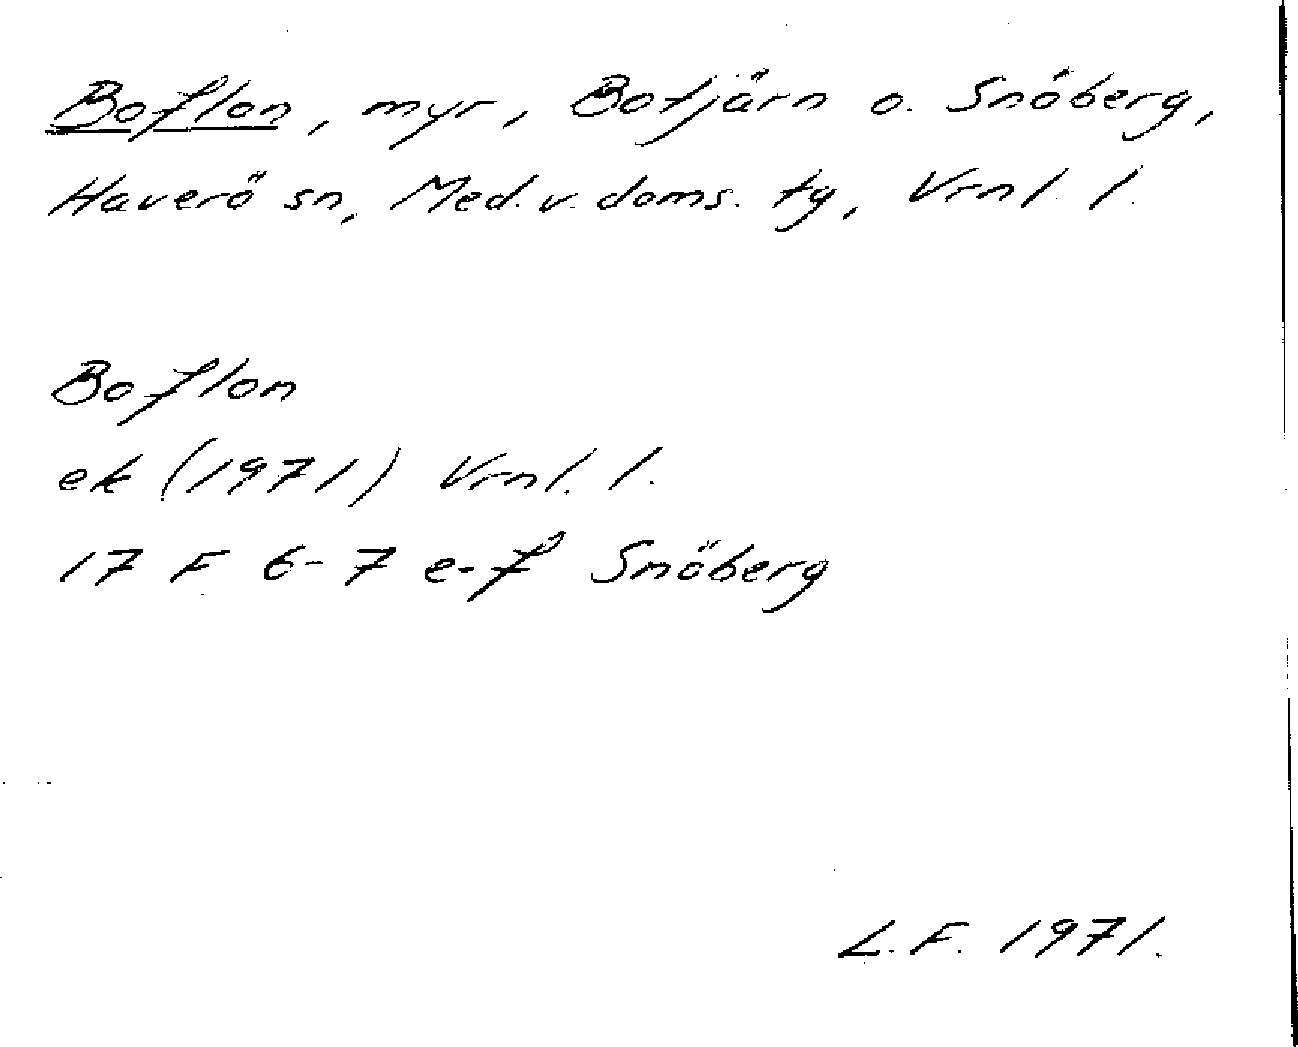 Boflon, myr, Botjärn o. Snöberg,
Haverö sn, Med. v. doms. tg, Vrnl. l.
Boflon
ek (1971) Vrnl. l.
17 F 6-7 e-f Snöberg
L.F. 1971.